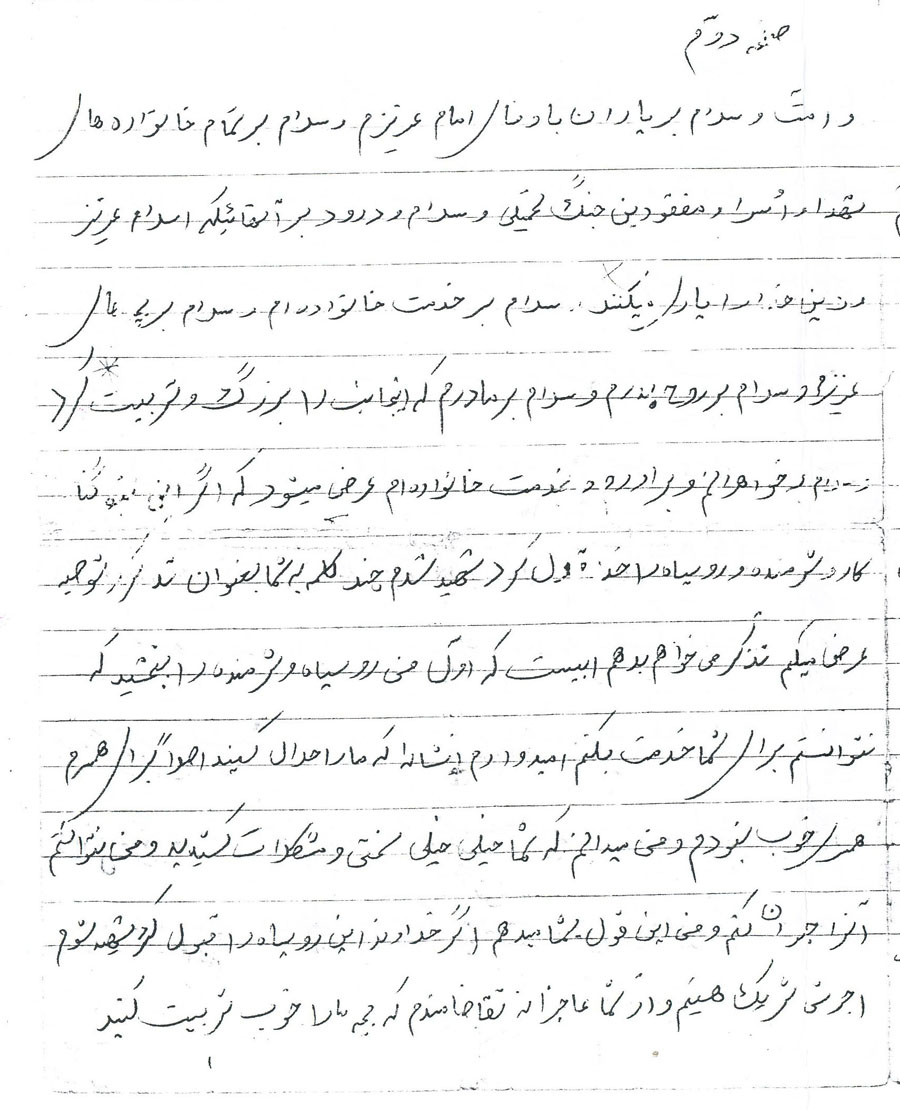 صفحه دوّم
و امّت و سلام بر یاران با وفای امام عزیزم و سلام بر تمام خانواده های
شهدا و اُسرا و مفقودین جنگ تحمیلی و سلام و درود بر آنهائیکه اسلام عزیز
و دین خدا را یاری میکنند. سلام بر خدمت خانواده ام و سلام بر بچه های
عزیزم و سلام بر روح پدرم و سلام بر مادرم که اینجانب را بزرگ و تربیت کرد
سلام بر خواهرانم و برادرم و خدمت خانواده ام عرض میشود که اگر این بنده گنا
کار و شرمنده و رو سیاه را خدا قبول کرد شهید شدم چند کلمه به شما بعنوان تذکر توصیه
عرض میکنم تذکّر می خواهم بدهم اینست که اوّل من رو سیاه و شرمنده را ببخشید که
نتوانستم برای شما خدمت بکنم امیدوارم انشااله که ما را حلال کنید اصولا برای همسرم
همسر خوب نبودم و من میدانم که شما خیلی خیلی سختی و مشکلات کشیدید و من نتوانستم
آنرا جبران کنم و من این قول بشما میدهم اگر خداوند این رو سیاه را قبول کرد شهید شوم
اجر من شریک هستیم و از شما عاجزانه تقاضامندم که بچه ها را خوب تربیت کنید